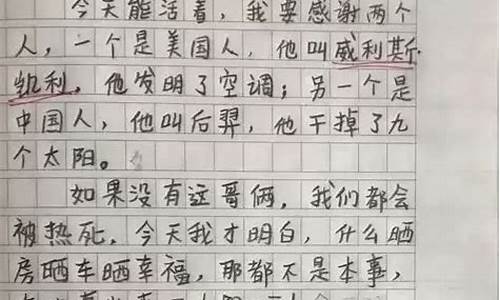 今天能活着，我要感谢两个
人，一个是美国人，他叫威利斯·
凯利，他发明了空调；另一个是
中国人，他叫后羿，他干掉了九
个太阳。
如果没有这哥俩，我们都会
被热死，今天我才明白，什么晒
房晒车晒幸福，那都不是本事，